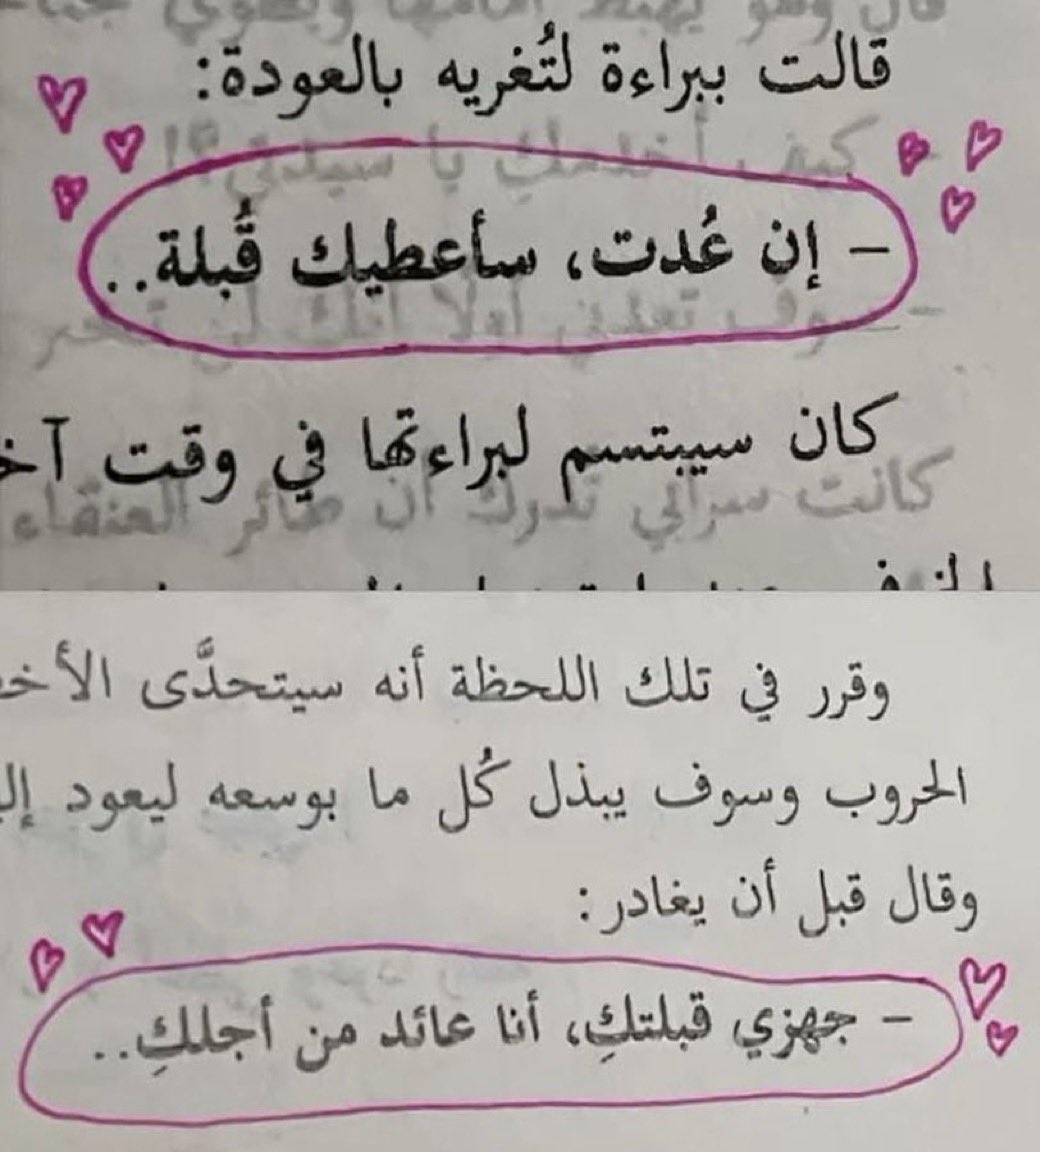 قالت ببراءة لتُغريه بالعودة:
– إن عُدت، سأعطيك قُبلة..
كان سيبتسم لبراءتها في وقت آخ
وقرر في تلك اللحظة أنه سيتحدَّى الأخ
الحروب وسوف يبذل كُل ما بوسعه ليعود إلي
وقال قبل أن يغادر:
– جهزي قبلتكِ، أنا عائد من أجللكِ..